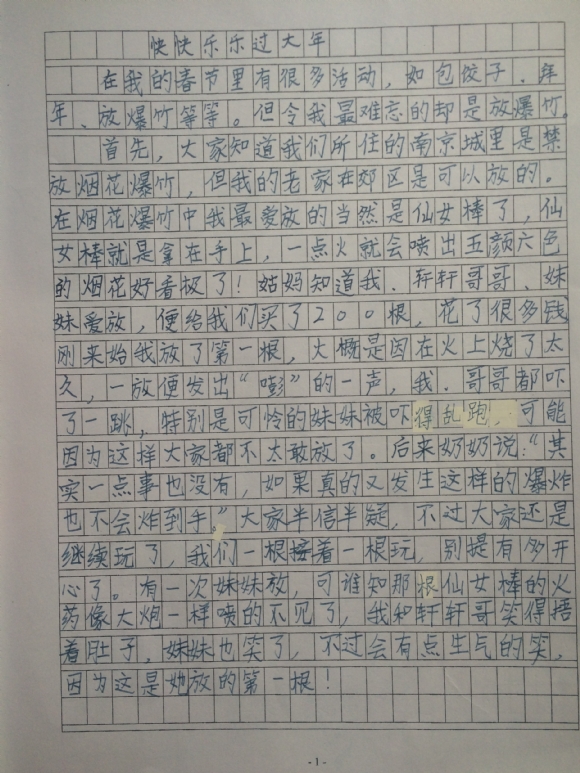 快快乐乐过大年
在我的春节里有很多活动，如包饺子、拜
年、放爆竹等等。但令我最难忘的却是放爆竹。
首先，大家知道我们所住的南京城里是禁
放烟花爆竹，但我的老家在郊区是可以放的。
在烟花爆竹中我最爱放的当然是仙女棒了，仙
女棒就是拿在手上，一点火就会喷出五颜六色
的烟花好看极了！姑妈知道我、轩轩哥哥、妹
妹爱放，便给我们买了200根，花了很多钱
刚来始我放了第一根，大概是因在火上烧了太
久，一放便发出“嘭”的一声，我、哥哥都吓
了一跳，特别是可怜的妹妹被吓得乱跑，可能
因为这样大家都不太敢放了。后来奶奶说：“其
实一点事也没有，如果真的又发生这样的爆炸
也不会炸到手。”大家半信半疑，不过大家还是
继续玩了，我们一根接着一根玩，别提有多开
心了。有一次妹妹放，可谁知那根仙女棒的火
药像大炮一样喷的不见了，我和轩轩哥笑得捂
着肚子，妹妹也笑了，不过会有点生气的笑，
因为这是她放的第一根！
-1-